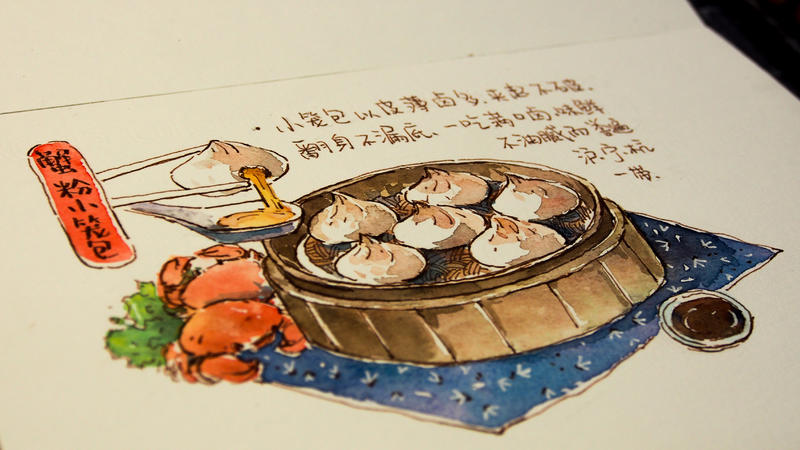 蟹粉小笼包
小笼包以皮薄卤多、夹起不破、
翻身不漏底、一吃满口卤、味鲜
不油腻而誉遍
沪宁杭
一带.